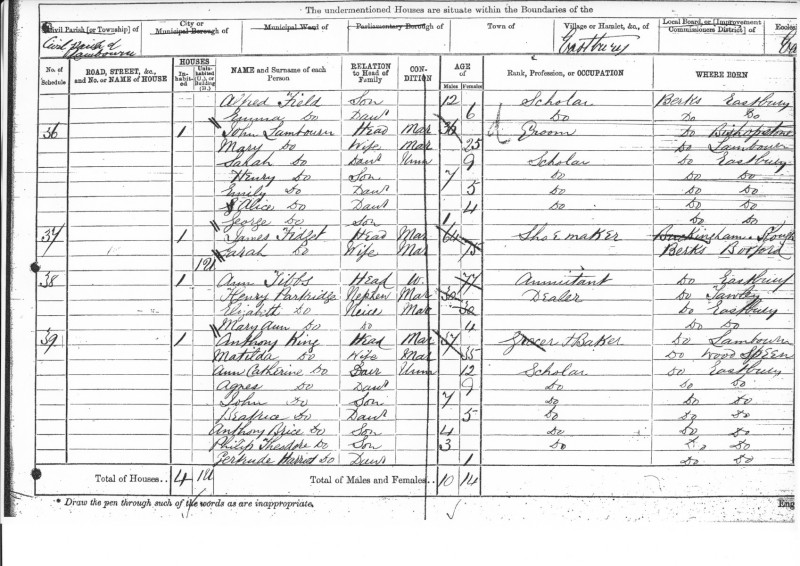 The undermentioned Houses are situate within the Boundaries of the
Civil Parish [or Township] of City or Municipal Borough of Municipal Ward of Parliamentary Borough of Town of Village or Hamlet, &c., of Local Board, or [Improvement Commissioners District] of
Civil Parish of Lambourn Eastbury
No. of Schedule ROAD, STREET, &c., and No. or NAME of HOUSE HOUSES Inhabited Uninhabited (U.), or Building (B.) NAME and Surname of each Person RELATION to Head of Family CONDITION AGE of Males Females Rank, Profession, or OCCUPATION WHERE BORN
Alfred Field Son 12 Scholar Berks Eastbury
Emma Do Daur 6 Do Do Do
36 1 John Lambourn Head Mar 36 Groom Do Bishopstone
Mary Do Wife Mar 25 Do Lambourn
Sarah Do Daur Unm 9 Scholar Do Eastbury
Henry Do Son 7 Do Do Do
Emily Do Daur 5 Do Do Do
Alice Do Daur 4 Do Do Do
George Do Son 1 Do Do
37 1 James Fidget Head Mar 64 Shoemaker Buckingham
Sarah Do Wife Mar 75 Berks Boxford
1U
38 1 Ann Tibbs Head W. 77 Annuitant Do Eastbury
Henry Partridge Nephew Mar 30 Dealer Do
Elizabeth Do Neice Mar 30 Do Eastbury
Mary Ann Do Do 4 Do Do
39 1 Anthony King Head Mar 37 Grocer & Baker Do Lambourn
Matilda Do Wife Mar 35 Do Wood Speen
Ann Catherine Do Daur Unm 12 Scholar Do Eastbury
Agnes Do Daur 9 Do Do Do
John Do Son 7 Do Do Do
Beatrice Do Daur 5 Do Do Do
Anthony Brice Do Son 4 Do Do Do
Philip Theodore Do Son 3 Do Do Do
Gertrude Harriot Do Daur 1 Do Do
Total of Houses.. 4 1U Total of Males and Females.. 10 14
* Draw the pen through such of the words as are inappropriate. Eng